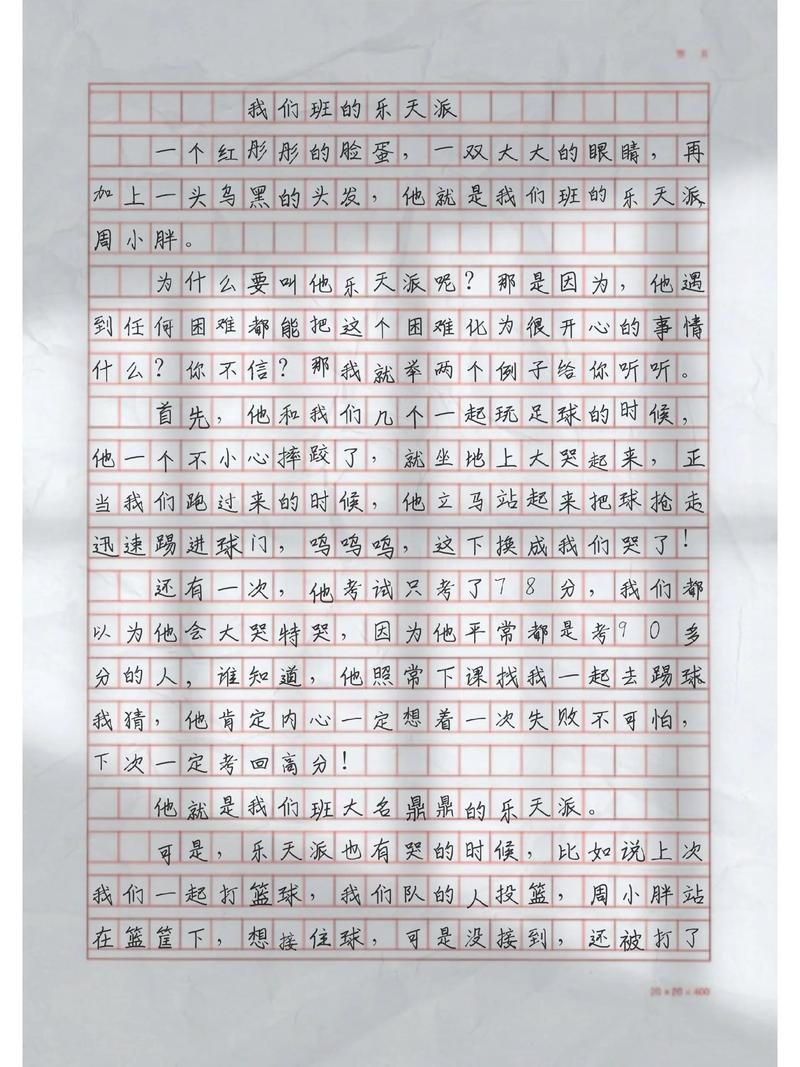 我们班的乐天派
一个红彤彤的脸蛋，一双大大的眼睛，再
加上一头乌黑的头发，他就是我们班的乐天派、
周小胖。
为什么要叫他乐天派呢？那是因为，他遇
到任何困难都能把这个困难化为很开心的事情
什么？你不信？那我就举两个例子给你听听。
首先，他和我们几个一起玩足球的时候，
他一个不小心摔跤了，就坐地上大哭起来，正
当我们跑过来的时候，他立马站起来把球抢走
迅速踢进球门，呜呜呜，这下换成我们哭了！
还有一次，他考试只考了78分，我们都
以为他会大哭特哭，因为他平常都是考90多
分的人，谁知道，他照常下课找我一起去踢球
我猜，他肯定内心一定想着一次失败不可怕，
下次一定考回高分！
他就是我们班大名鼎鼎的乐天派。
可是，乐天派也有哭的时候，比如说上次
我们一起打篮球，我们队的人投篮，周小胖站
在篮筐下，想接住球，可是没接到，还被打了
20×20=400